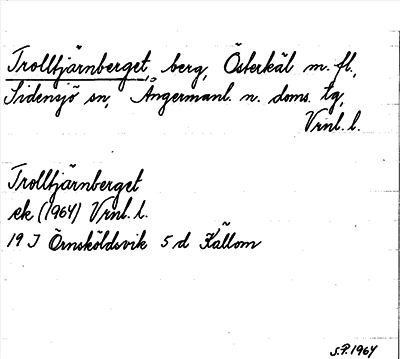 Trolltjärnberget, berg, Österkäl m.fl.,
Sidensjö sn, Ångermanl. n. doms. tg,
Vrnl. l.
Trolltjärnberget
ek (1964) Vrnl. l.
19 J Örnsköldsvik 5 d Källom
S.P. 1964